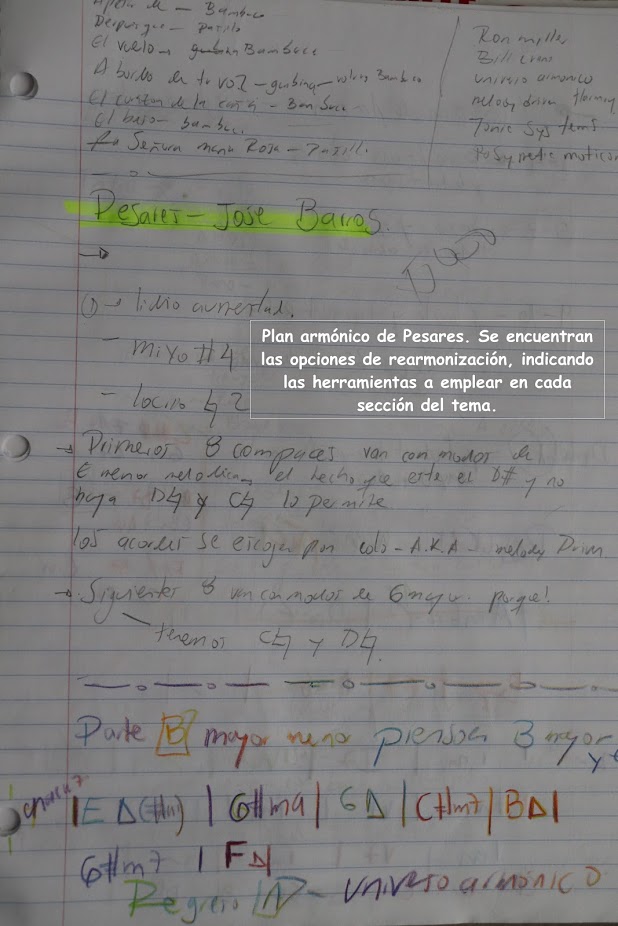 de - Bambuco
Despasque - Pasillo
El vuelo - Bambuco
A bordo de tu voz - guabina - Bambuco
El de la - Bambuco
El bajo - bambuco
La Señora maria Rosa - Pasillo
Ron miller
Bill evans
universo armónico
melody driven
Tonic Systems
Pesares - Jose Barros.
①→ lidio aumentad.
- mixo #4
- locrio ♮2
Plan armónico de Pesares. Se encuentran
las opciones de rearmonización, indicando
las herramientas a emplear en cada
sección del tema.
→ Primeros 8 compaces van con modos de
E menor melodica, el hecho que este el D# y no
haya D♮ y C♮ lo permite
los acordes se escogen por - A.K.A - melody Driven
→ Siguientes 8 van con modos de G mayor. porque!
tenemos C♮ y D♮.
Parte B mayor menor piensa B mayor
y
|E Δ(#11) | G#m9 | GΔ | C#m7 | BΔ |
G#m7 | FΔ|
Regreso |A| - universo armónico